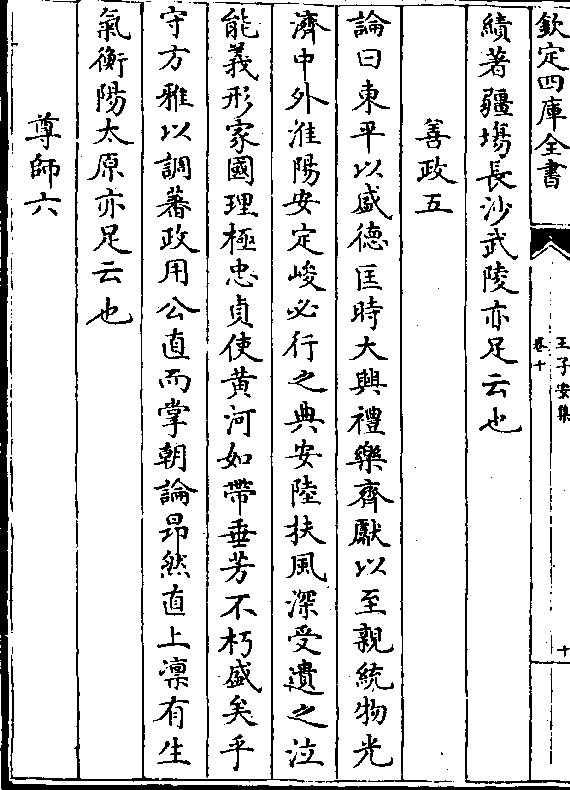 欽定四庫全書
王子安集
卷十
十
績著疆埸長沙武陵亦足云也
善政五
論曰東平以盛德匡時大興禮樂齊獻以至親統物光
濟中外淮陽安定峻必行之典安陸扶風深受遺之泣
能義形家國理極忠貞使黄河如帶垂芳不朽盛矣乎
守方雅以調蕃政用公直而掌朝論昂然直上凛有生
氣衡陽太原亦足云也
尊師六